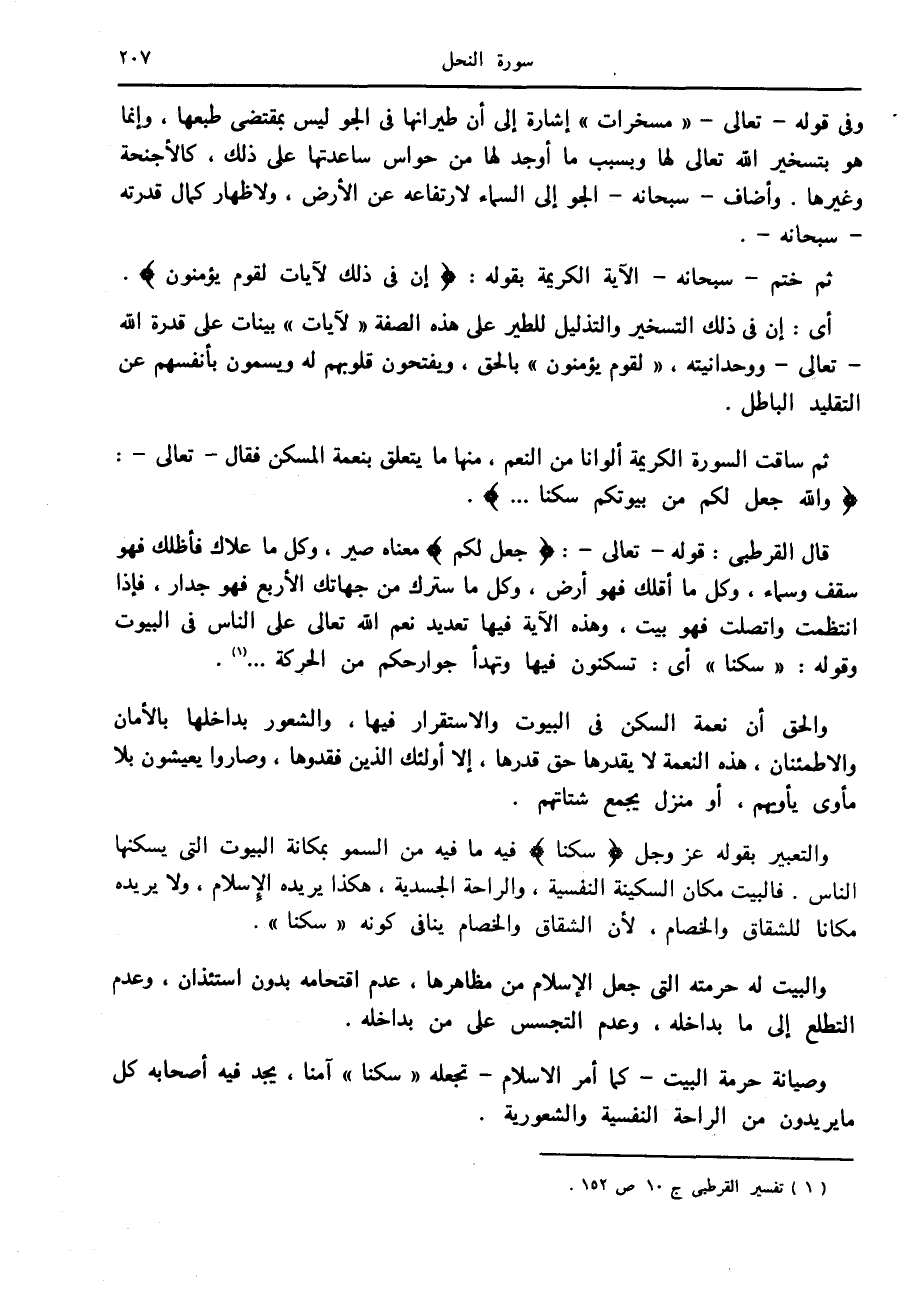 سورة النحل ٢٠٧
وفى قوله – تعالى – « مسخرات » إشارة إلى أن طيرانها فى الجو ليس بمقتضى طبعها ، وإنما
هو بتسخير الله تعالى لها وبسبب ما أوجد لها من حواس ساعدتها على ذلك ، كالأجنحة
وغيرها . وأضاف – سبحانه – الجو إلى السماء لارتفاعه عن الأرض ، ولاظهار كمال قدرته
– سبحانه – .
ثم ختم – سبحانه – الآية الكريمة بقوله : ﴿ إن فى ذلك لآيات لقوم يؤمنون ﴾ .
أى : إن فى ذلك التسخير والتذليل للطير على هذه الصفة « لآيات » بينات على قدرة الله
– تعالى – ووحدانيته ، « لقوم يؤمنون » بالحق ، ويفتحون قلوبهم له ويسمون بأنفسهم عن
التقليد الباطل .
ثم ساقت السورة الكريمة ألوانا من النعم ، منها ما يتعلق بنعمة المسكن فقال – تعالى – :
﴿ والله جعل لكم من بيوتكم سكنا ... ﴾ .
قال القرطبى : قوله – تعالى – : ﴿ جعل لكم ﴾ معناه صير ، وكل ما علاك فأظلك فهو
سقف وسماء ، وكل ما أقلك فهو أرض ، وكل ما سترك من جهاتك الأربع فهو جدار ، فإذا
انتظمت واتصلت فهو بيت ، وهذه الآية فيها تعديد نعم الله تعالى على الناس فى البيوت
وقوله : « سكنا » أى : تسكنون فيها وتهدأ جوارحكم من الحركة ...(١) .
والحق أن نعمة السكن فى البيوت والاستقرار فيها ، والشعور بداخلها بالأمان
والاطمئنان ، هذه النعمة لا يقدرها حق قدرها ، إلا أولئك الذين فقدوها ، وصاروا يعيشون بلا
مأوى يأويهم ، أو منزل يجمع شتاتهم .
والتعبير بقوله عز وجل ﴿ سكنا ﴾ فيه ما فيه من السمو بمكانة البيوت التى يسكنها
الناس . فالبيت مكان السكينة النفسية ، والراحة الجسدية ، هكذا يريده الإسلام ، ولا يريده
مكانا للشقاق والخصام ، لأن الشقاق والخصام ينافى كونه « سكنا » .
والبيت له حرمته التى جعل الإسلام من مظاهرها ، عدم اقتحامه بدون استئذان ، وعدم
التطلع إلى ما بداخله ، وعدم التجسس على من بداخله .
وصيانة حرمة البيت – كما أمر الاسلام – تجعله « سكنا » آمنا ، يجد فيه أصحابه كل
مايريدون من الراحة النفسية والشعورية .
( ١ ) تفسير القرطبى ج ١٠ ص ١٥٢ .